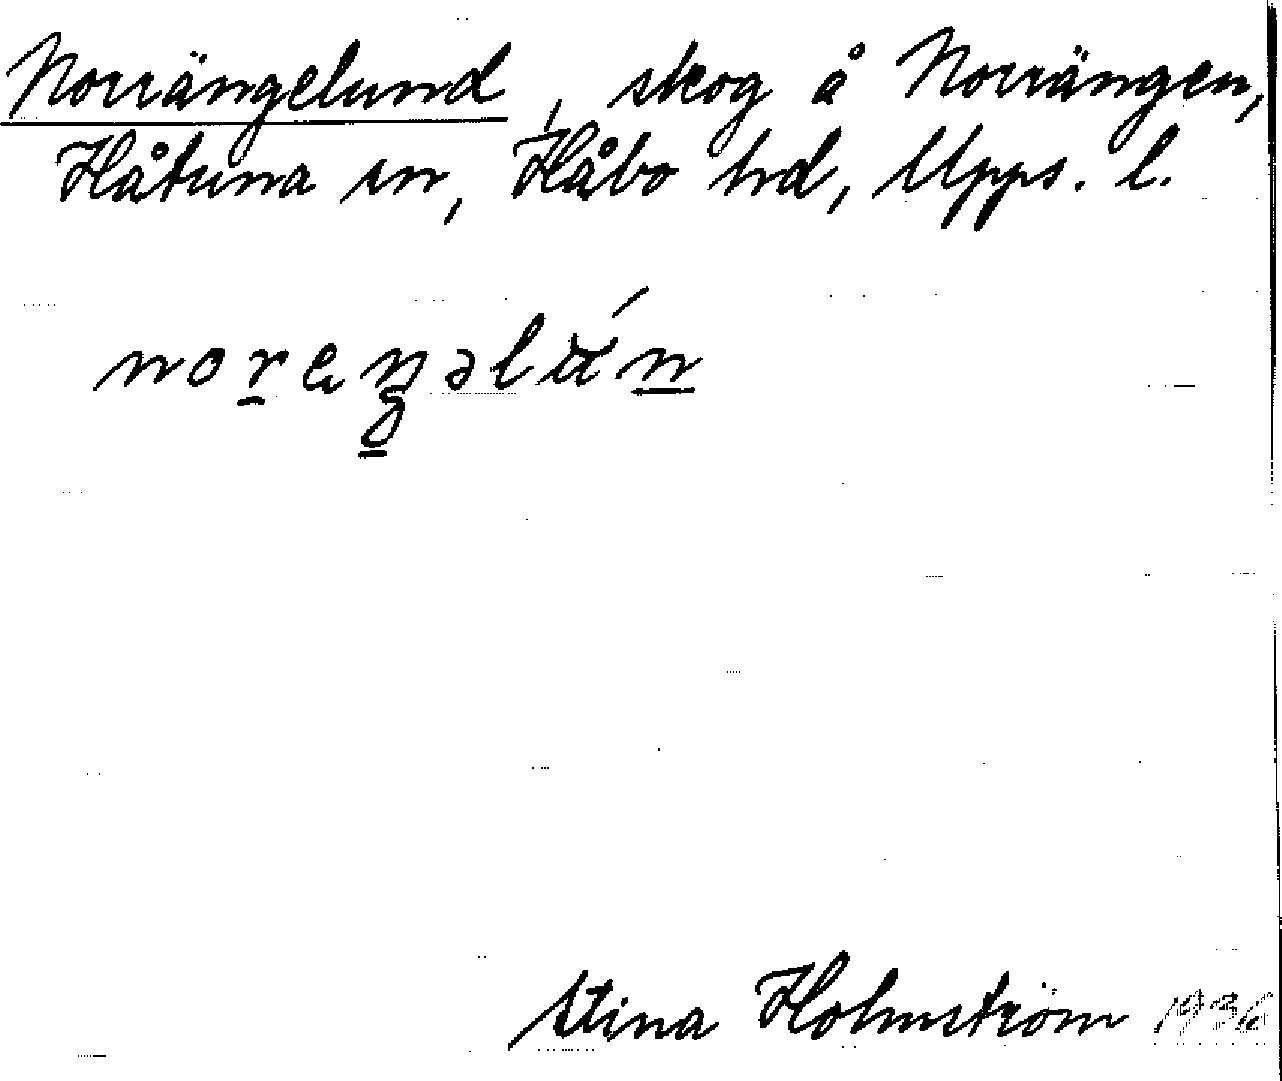 Norrängelund, skog å Norrängen,
Håtuna sn, Håbo hd, Upps. l.
Stina Holmström 1936